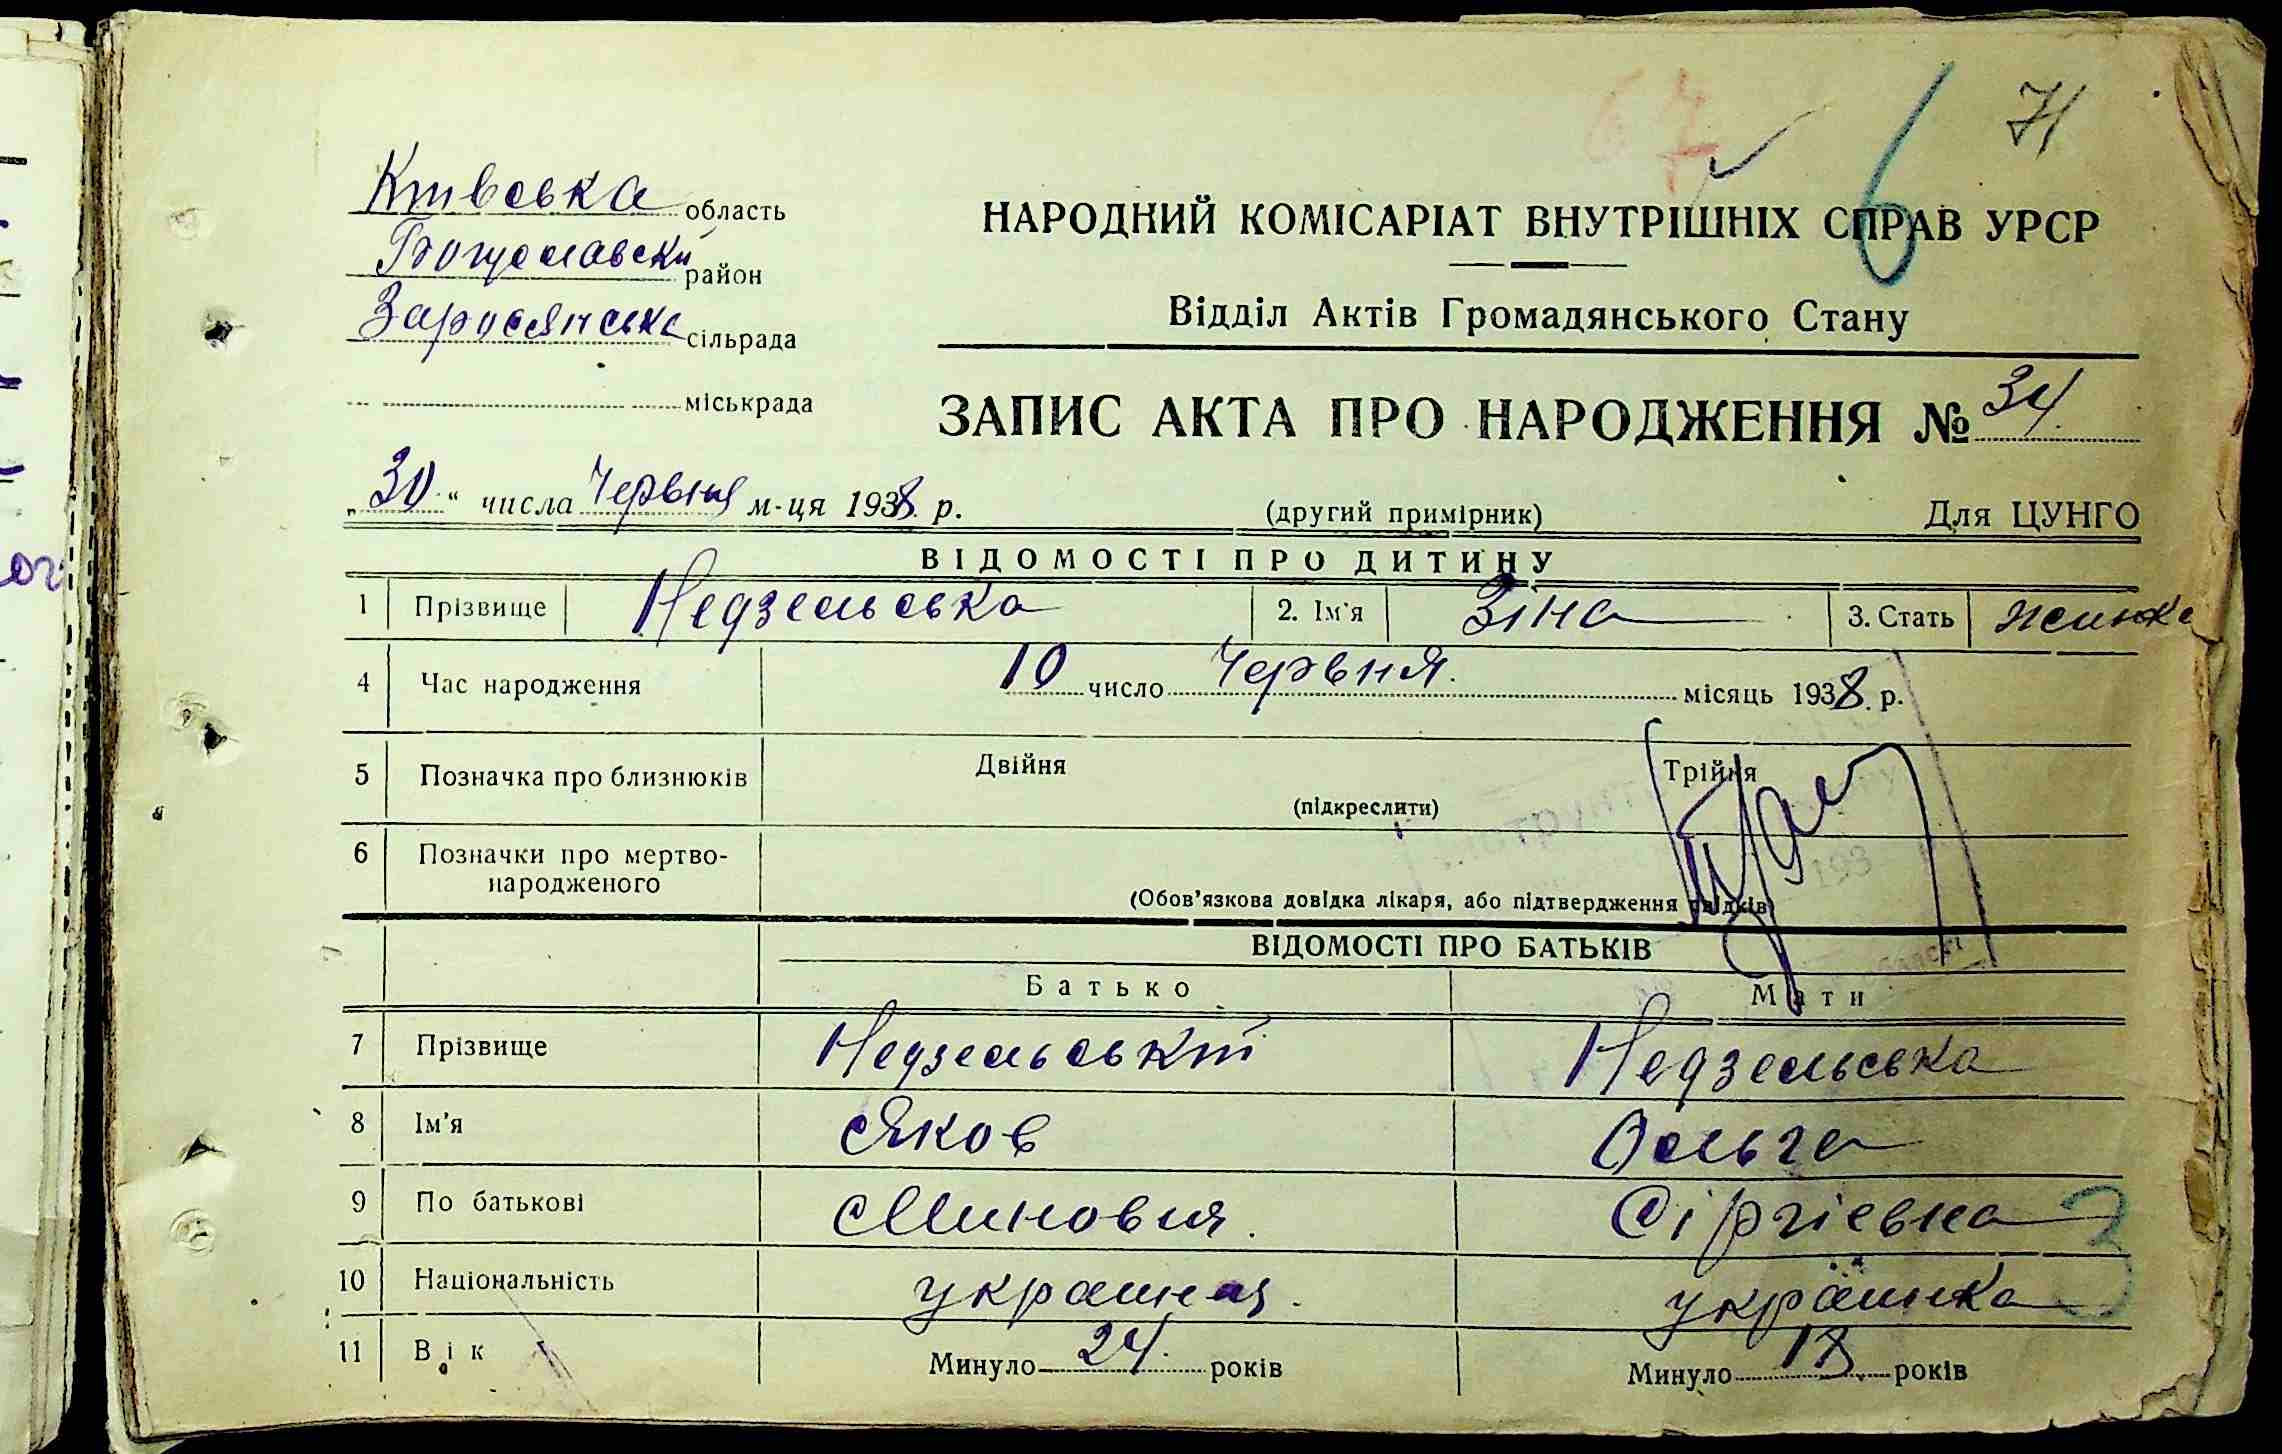 67 6 71
Київська область
Богуславский район
Заросянська сільрада
міськрада
НАРОДНИЙ КОМІСАРІАТ ВНУТРІШНІХ СПРАВ УРСР
Відділ Актів Громадянського Стану
ЗАПИС АКТА ПРО НАРОДЖЕННЯ № 34.
„30“ числа Червня м-ця 1938 р.
(другий примірник) Для ЦУНГО
ВІДОМОСТІ ПРО ДИТИНУ
1 Прізвище Недзельська 2. Ім'я Зіна 3. Стать жінка
4 Час народження 10 число Червня місяць 1938. р.
5 Позначка про близнюків Двійня (підкреслити) Трійня
6 Позначки про мертво-
народженого
(Обов'язкова довідка лікаря, або підтвердження свідків)
ВІДОМОСТІ ПРО БАТЬКІВ
Батько Мати
7 Прізвище Недзельский Недзельська
8 Ім'я Яков Ольга
9 По батькові Минович Сіргієвна
10 Національність українець українка
11 Вік Минуло 24 років Минуло 18 років
3